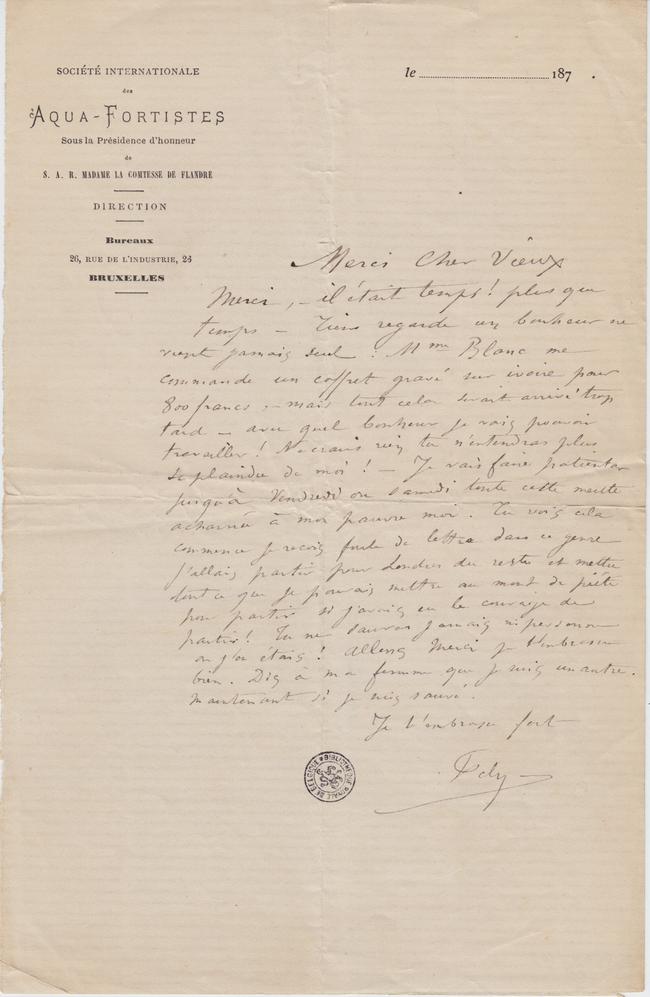 SOCIÉTÉ INTERNATIONALE
des
AQUA-FORTISTES
Sous la Présidence d'honneur
de
S. A. R. MADAME LA COMTESSE DE FLANDRE
DIRECTION
Bureaux
26, RUE DE L'INDUSTRIE, 26
BRUXELLES
le 187 .
Merci Cher Vieux
Merci, – il était temps! plus que
temps – Tiens regarde un bonheur ne
vient jamais seul : Mme Blanc me
commande un coffret gravé sur ivoire pour
800 francs, – mais tout cela serait arrivé trop
tard – avec quel bonheur je vais pouvoir
travailler! Ne crains rien tu n'entendras plus
se plaindre de moi! – Je vais faire patienter
jusqu'à Vendredi ou Samedi toute cette meute
acharnée à mon pauvre moi. Tu vois cela
commence je reçois foule de lettre dans ce genre
J'allais partir pour Londres du reste et mettre
tout ce que je pouvais mettre au mont de piété
pour partir si j'avais eu le courage de
partir! Tu ne sauras jamais ni personne
où j'en étais! Allons Merci je t'embrasse
bien. Dis à ma femme que je suis un autre.
maintenant si je suis sauvé.
Je t'embrasse fort
Fély
BIBLIOTHÈQUE ROYALE DE BELGIQUE